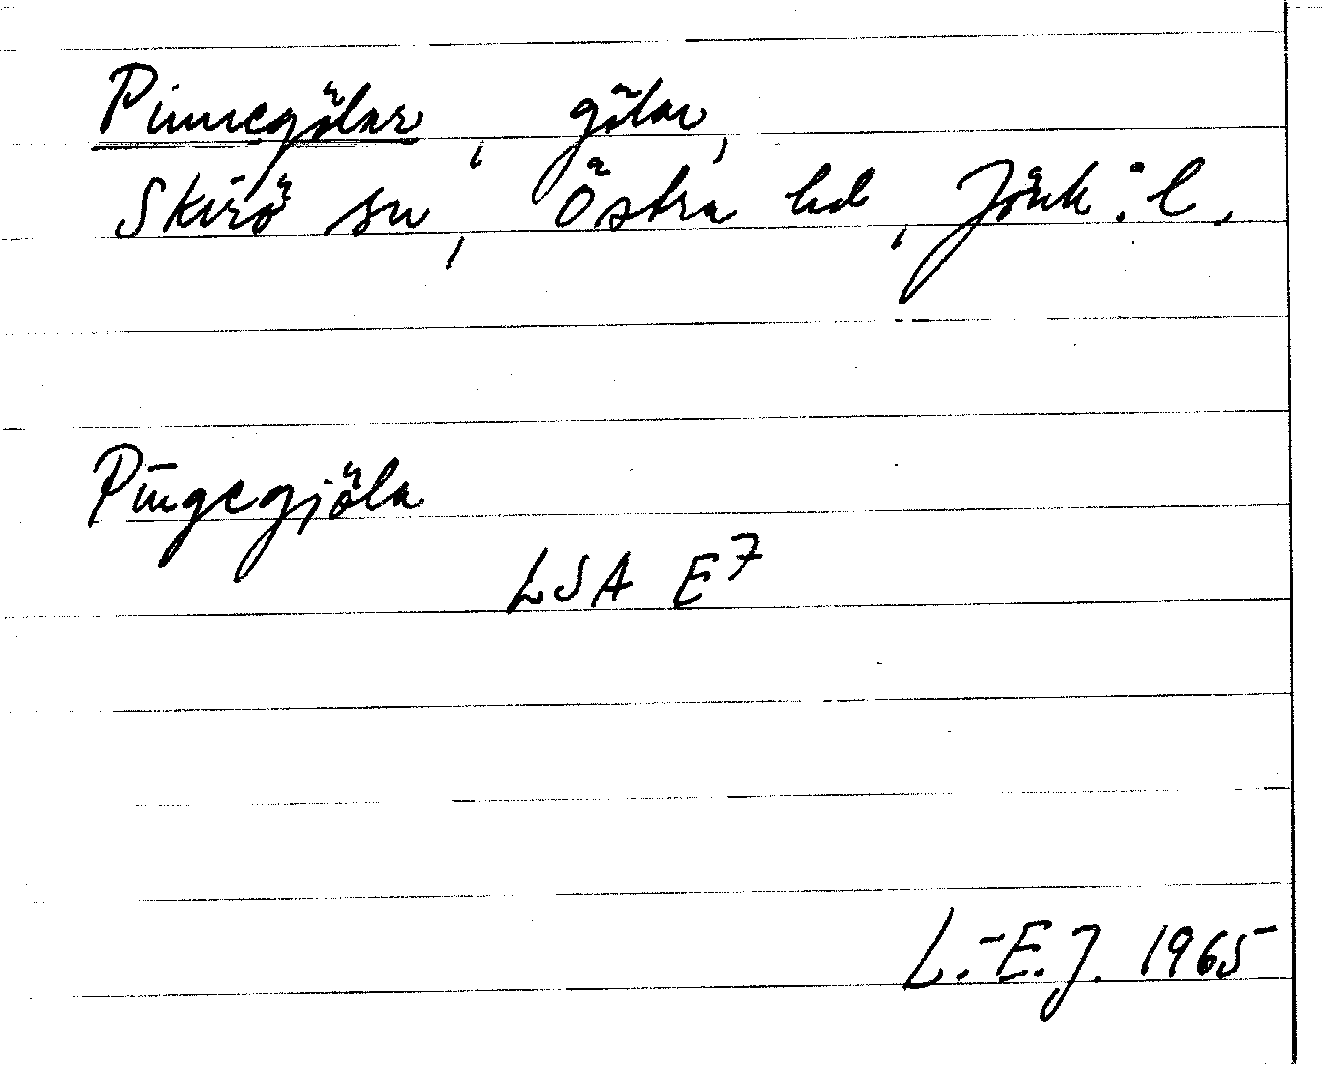 Pinnegölar, gölar,
Skirö sn, Östra hd, Jönk:l.
Pingegjöla
LSA E7
L.-E.J. 1965